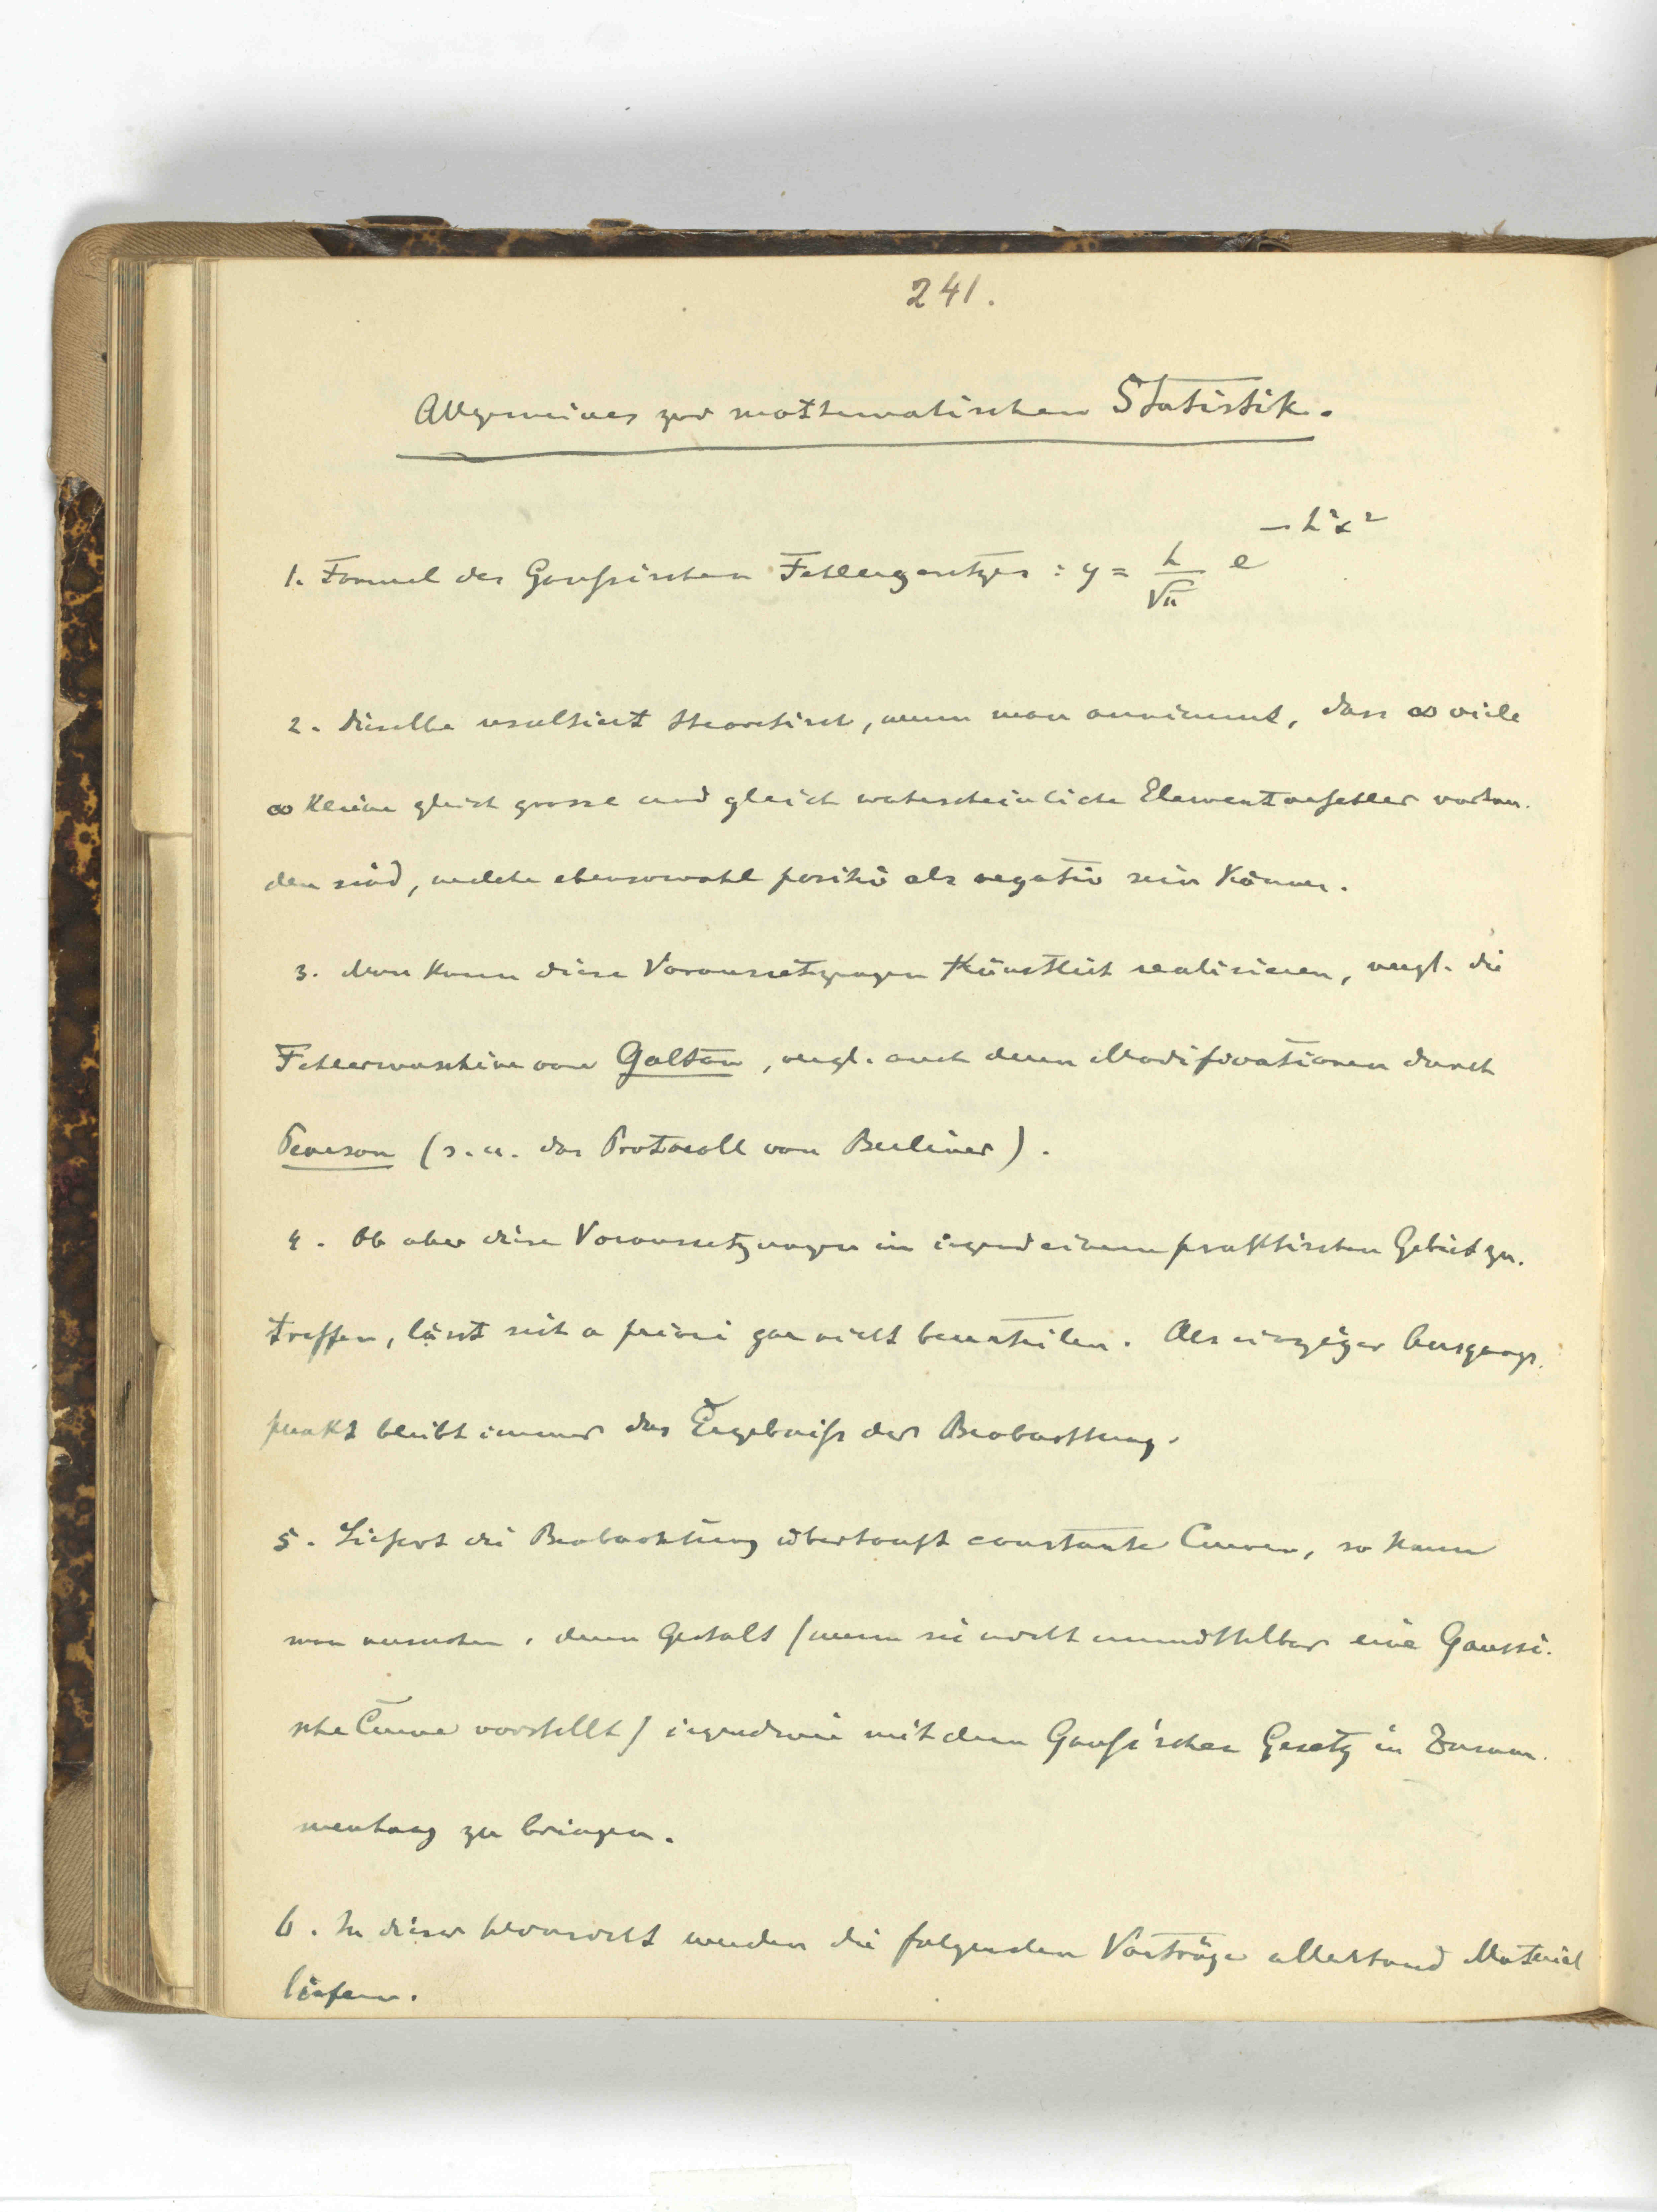 241.
Allgemeines zur mathematischen Statistik.
1. Formel des Gaußischen Fehlergesetzes : y = h/√π e^{-h²x²}
2. Dieselbe resultiert theoretisch, wenn man annimmt, dass ∞ viele
∞ kleine gleich grosse und gleich wahrscheinliche Elementarfehler vorhan-
den sind, welche ebensowohl positiv als negativ sein können.
3. Man kann diese Voraussetzungen künstlich realisieren, vergl. die
Fehlermaschine von Galton, vergl. auch deren Modificationen durch
Pearson (s. u. das Protocoll von Berliner).
4. Ob aber diese Voraussetzungen in irgend einem praktischen Gebiet zu-
treffen, lässt sich a priori gar nicht beurteilen. Als einziger Ausgangs-
punkt bleibt immer das Ergebniß der Beobachtung.
5. Liefert die Beobachtung überhaupt constante Curven, so kann
man versuchen, deren Gestalt (wenn sie nicht unmittelbar eine Gaussi-
sche Curve vorstellt) irgendwie mit dem Gaußischen Gesetz in Zusam-
menhang zu bringen.
6. In dieser Hinsicht werden die folgenden Vorträge allerhand Material
liefern.